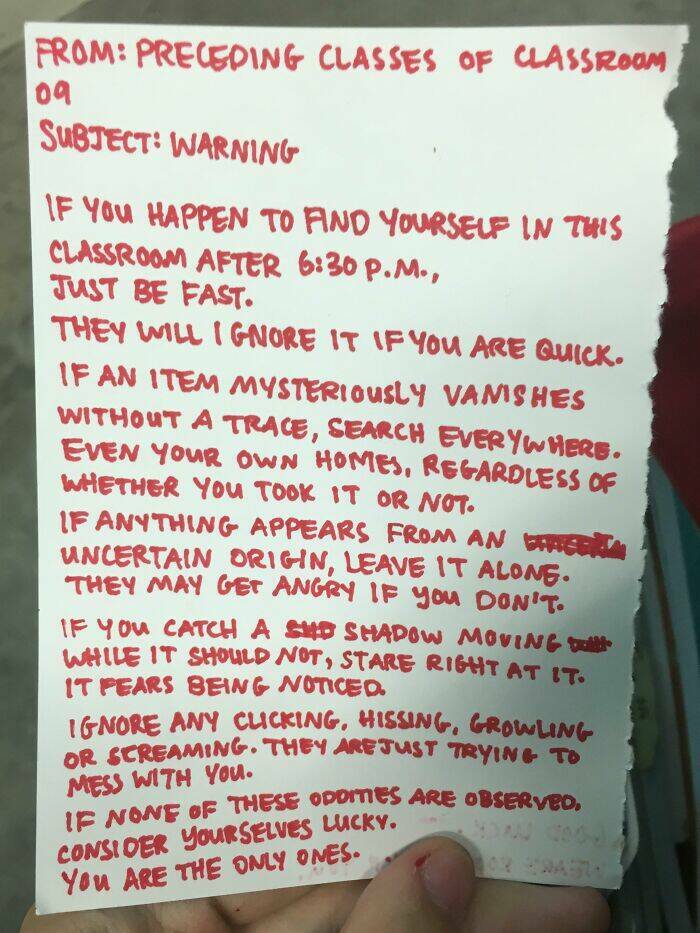 FROM: PRECEDING CLASSES OF CLASSROOM
09
SUBJECT: WARNING
IF YOU HAPPEN TO FIND YOURSELF IN THIS
CLASSROOM AFTER 6:30 P.M.,
JUST BE FAST.
THEY WILL IGNORE IT IF YOU ARE QUICK.
IF AN ITEM MYSTERIOUSLY VANISHES
WITHOUT A TRACE, SEARCH EVERYWHERE.
EVEN YOUR OWN HOMES, REGARDLESS OF
WHETHER YOU TOOK IT OR NOT.
IF ANYTHING APPEARS FROM AN
UNCERTAIN ORIGIN, LEAVE IT ALONE.
THEY MAY GET ANGRY IF YOU DON'T.
IF YOU CATCH A SHADOW MOVING
WHILE IT SHOULD NOT, STARE RIGHT AT IT.
IT FEARS BEING NOTICED.
IGNORE ANY CLICKING, HISSING, GROWLING
OR SCREAMING. THEY ARE JUST TRYING TO
MESS WITH YOU.
IF NONE OF THESE ODDITIES ARE OBSERVED,
CONSIDER YOURSELVES LUCKY.
YOU ARE THE ONLY ONES.